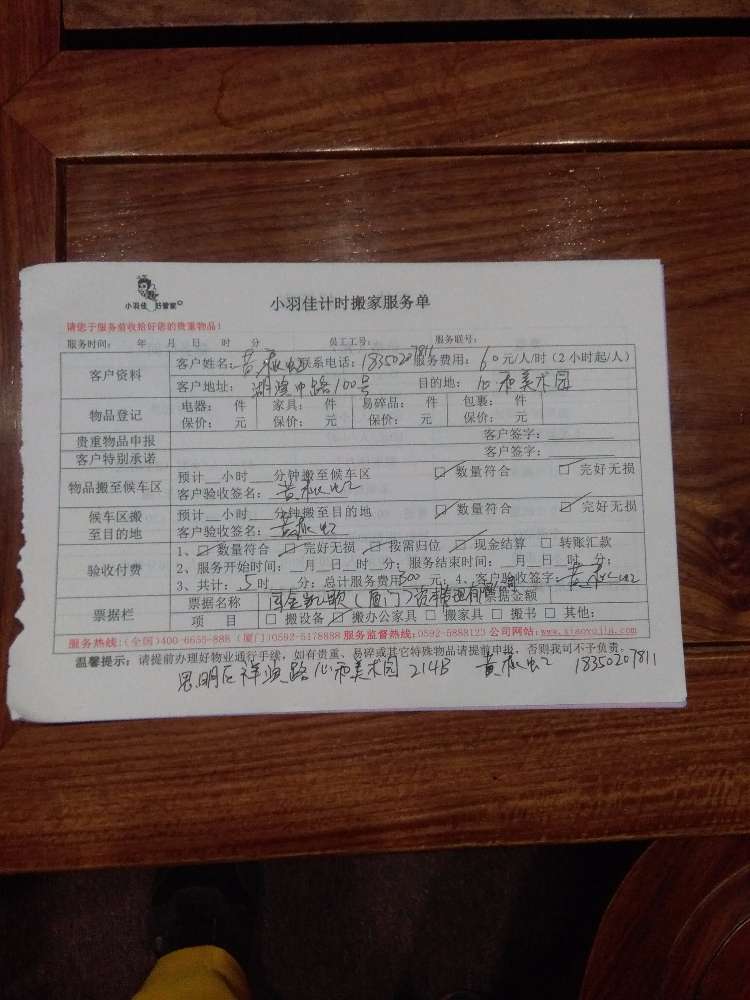 小羽佳 好管家
小羽佳计时搬家服务单
请您于服务前收拾好您的贵重物品!
服务时间: 年 月 日 时 分 员工工号: 服务联号:
客户资料
客户姓名: 黄 联系电话: 18350207811 服务费用: 60元/人/时(2小时起/人)
客户地址: 湖滨中路100号 目的地: 美术园
物品登记
电器: 件 家具: 件 易碎品: 件 包裹: 件
保价: 元 保价: 元 保价: 元 保价: 元
贵重物品申报 客户签字:
客户特别承诺 客户签字:
物品搬至候车区
预计__小时__分钟搬至候车区 ☑数量符合 □完好无损
客户验收签名: 黄
候车区搬至目的地
预计__小时__分钟搬至目的地 ☑数量符合 ☑完好无损
客户验收签名: 黄
验收付费
1、☑数量符合 ☑完好无损 ☑按需归位 ☑现金结算 □转账汇款
2、服务开始时间: __月__日__时__分; 服务结束时间: __月__日__时__分;
3、共计: 5时__分; 总计服务费用 300元; 4、客户验收签字: 黄
票据栏
票据名称 (厦门)资产管理有限 票据金额
项 目 □搬设备 ☑搬办公家具 □搬家具 □搬书 □其他:
服务热线:(全国)400-6650-888 (厦门)0592-5178888 服务监督热线:0592-5888123 公司网站:www.xiaoyujia.com
温馨提示: 请提前办理好物业通行手续, 如有贵重、易碎或其它特殊物品请提前申报, 否则我司不予负责。
思明区 路 美术园 214B 黄 18350207811